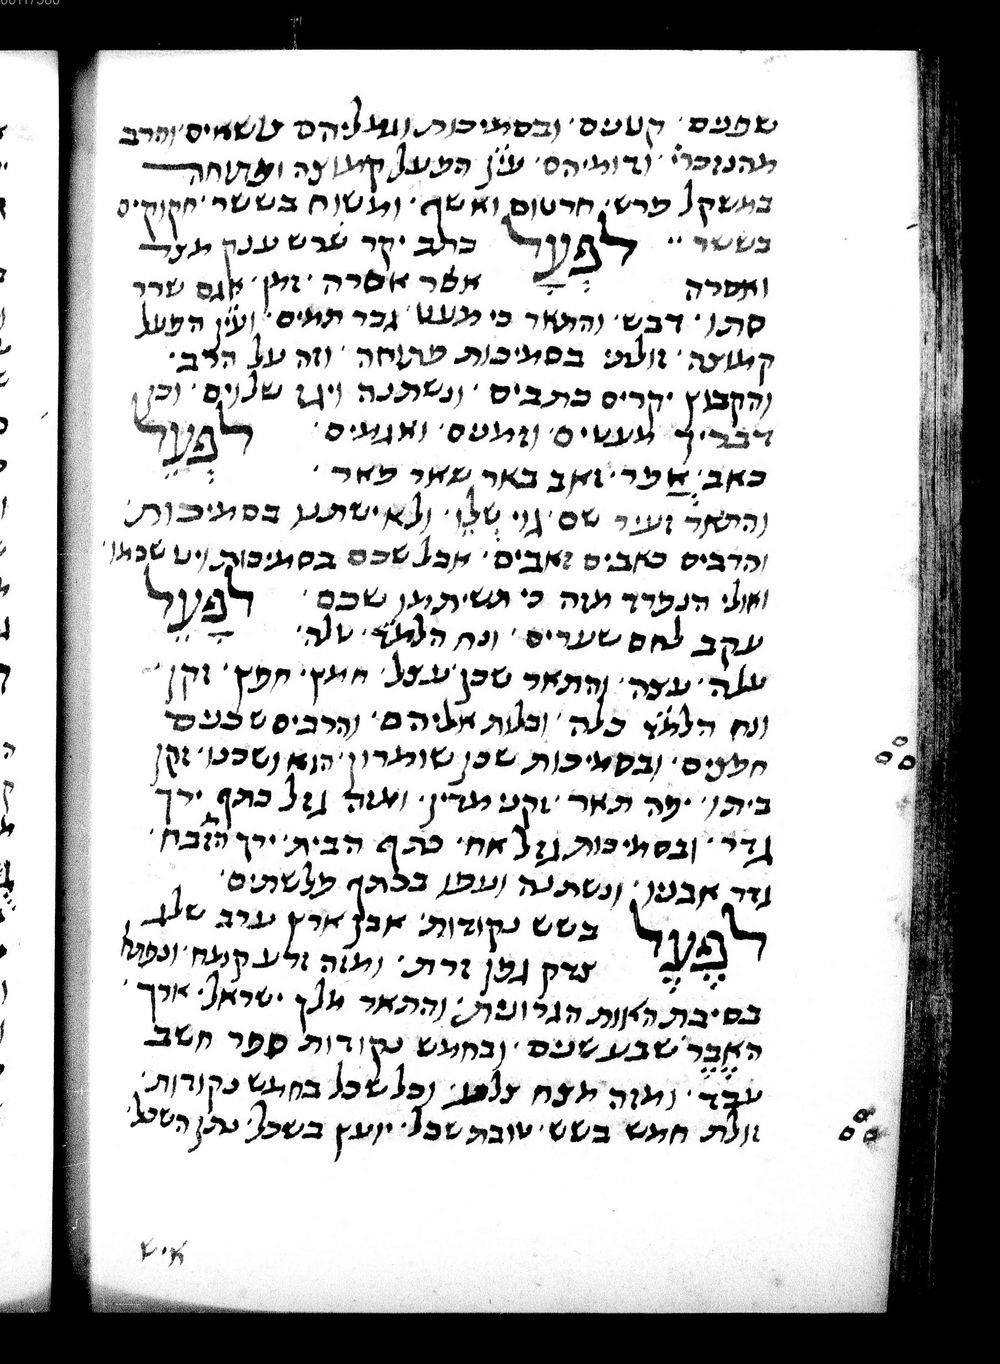 שפנים · קטנים · ובסמיכות וגמליהם נושאים · והרב
מהנזכרי · ודומיהם · עין הפעל קמוצה ופתוחה
במשקל פרש · חרטום ואשף · ומשוח בששר · חקוקים
בששר ·· לפָעָל כתב יקר שרש ענק מצד
ואסרה אשר אסרה · זמן · אגם שרר
סתו · דבש · והתאר כי מעט · גבר תמים · ועין הפעל
קמוצה · זולתי בסמיכות פתוחה · וזה על הרב ·
והקבוץ יקרים כתבים · ונשתנה ויגז שלוים · וכן
דבריך מעטים · וזמנים · ואגמים · לפְעֵל
כאב · אֲמר · זאב באר שאר פאר ·
והתאר זעיר שם · גוי שְלֵו · ולא ישתנו בסמיכות ·
והרבים כאבים זאבים · אבל שכם בסמיכות ויט שכמו
ואולי הנפרד מזה כי תשיתמו שכם · לפָעֵל
עקב לחם שערים · ונח הלמד · טלה ·
עלה · עצה · והתאר שכן · עצל · חמץ · חפץ · זקן ·
ונח הלמד כלה · וכלות אליהם · והרבים שכנים
חפצים · ובסמיכות שכן שומרון · הוא ושכנו · זקן
ביתו · יפה תאר · זקני מדין · ומזה גזל כתף ירך
גדר · ובסמיכות גזל אח · כתף הבית · ירך המזבח ·
גדר אבניו · ונשתנה ועפו בכתף פלשתים ·
לפֶעֶל בשש נקודות · אבן ארץ ערב שלג
צדק גפן זרת · ומזה זרע קמח · ונפתח
בסיבת האות הגרונית · והתאר מלך ישראל · ארך ·
האֵבֶר שבע שנים · ובחמש נקודות ספר חשב
עבד · ומזה מצח צלע · וכל שכל בחמש נקודות ·
זולת חמש בשש · טובת שכל · יועץ בשכל · נתן השכל ·
איש